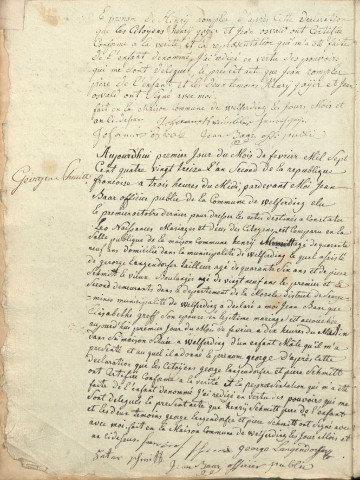 le prenom de Henry Compler d'après cette declaration
que les Citoyens henry goyer et jean oswalt ont Certifiée
Conforme a la verité et la representation qui m'a été faite
de l'enfant denommé, j'ai redigé en vertu des pouvoirs
qui me sont delegués le présent acte que jean Compler
pere de l'enfant et les deux temoins henry goyer et jean
oswalt ont signé avec moi
fait en la Maison Commune de Welferding les jours Mois et
an cidessus
Jean Baar officier public
George Schmitt
Aujourdhui premier Jour du Mois de fevrier Mil Sept
Cent quatre vingt treize Lan Second de la republique
francoise a trois heures du Midi, pardevant Moi Jean
Baar officier public de la Commune de Welferding elu
le premier octobre dernier pour dresser les actes destinés a Constater
les Naissances Mariages et Décès des Citoyens, est comparu en la
Salle publique de la maison Commune henry Schmitt agé de quarante
neuf ans domicilié dans la municipalité de Welferding le quel assisté
de george Langendorfer tailleur agé de quarante Six ans et de piere
Schmitt le vieux Boulanger agé de vingt neuf ans le premier et le
Second demeurants dans le departement de la Moselle district de Sargue-
mines municipalité de Welferding a declaré a moi Jean Baar que
Elisabethe greff Son epouse en legitime mariage est accouchée
aujourdhui premier Jour du Mois de fevrier a dix heures du Matin
dans Sa maison Sise a Welferding d'un enfant Male qu'il m'a
presenté et au quel il a donné le prénom george d'après cette
declaration que les Citoyens george langendorfer et piere Schmitt
ont Certifiée Conforme a la verité et la representation qui m'a été
faite de l'enfant denommé J'ai redigé en vertu des pouvoirs qui me
sont delegués le present acte que henry Schmitt pere de l'enfant
et les deux temoins george langendorfer et piere Schmitt ont signé avec
avec moi, fait en la Maison Commune de Welferding les jour Mois et
an cidessus
george Langendorfer
schmitt Jean Baar officier public